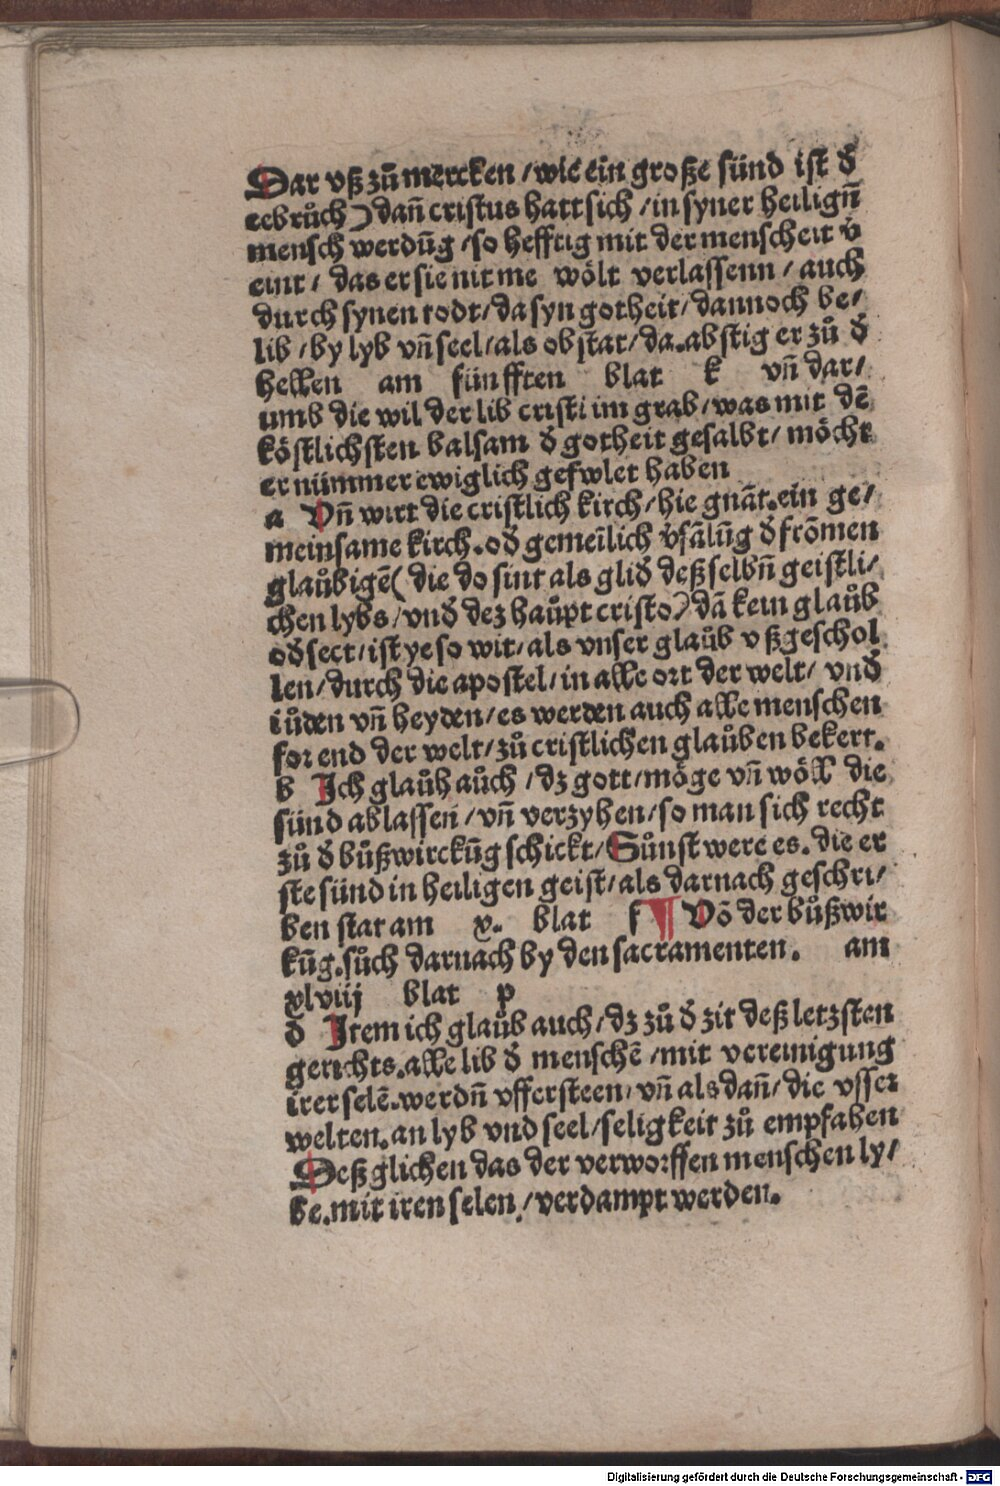 Dar vß zů mercken / wie ein große sünd ist d̕
eebrůch) dañ cristus hatt sich / in syner heiligñ
mensch werdūg / so hefftig mit der menscheit v̕
eint / das er sie nit me wölt verlassenn / auch
durch synen todt / da syn gotheit / dannoch be/
lib / by lyb vñ seel / als ob stat / da. abstig er zů d̕
hellen am fünfften blat k vñ dar/
umb die wil der lib cristi im grab / was mit dē
köstlichsten balsam d̕ gotheit gesalbt / möcht
er nümmer ewiglich gefwlet haben
a Vñ wirt die cristlich kirch / hie gnāt. ein ge/
meinsame kirch. od̕ gemeilich v̕sālūg d̕ frōmen
glaůbigē ( die do sint als glid̕ deß selbñ geistli/
chen lybs / vnd̕ dez haůpt cristo) dā kein glaůb
od̕ sect / ist ye so wit / als vnser glaůb vßgeschol
len / durch die apostel / in alle ort der welt / vnd̕
iůden vñ heyden / es werden auch alle menschen
for end der welt / zů cristlichen glaůben bekert.
b Ich glaůb aůch / dz gott / möge vñ wöll die
sünd ablassen / vñ verzyhen / so man sich recht
zů d̕ bůßwirckūg schickt / Sůnst were es. die er
ste sünd in heiligen geist / als darnach geschri/
ben stat am x. blat f ¶ Vō der bůßwir
kūg. sůch darnach by den sacramenten. am
xlviij blat p
d̕ Item ich glaůb auch / dz zů d̕ zit deß letzsten
gerichts. alle lib d̕ menschē / mit vereinigung
irer selē. werdñ vffersteen / vñ als dañ / die vsser
welten. an lyb vnd seel / seligkeit zů empfahen
Deß glichen das der verworffen menschen ly/
be. mit iren selen / verdampt werden.
Digitalisierung gefördert durch die Deutsche Forschungsgemeinschaft - DFG